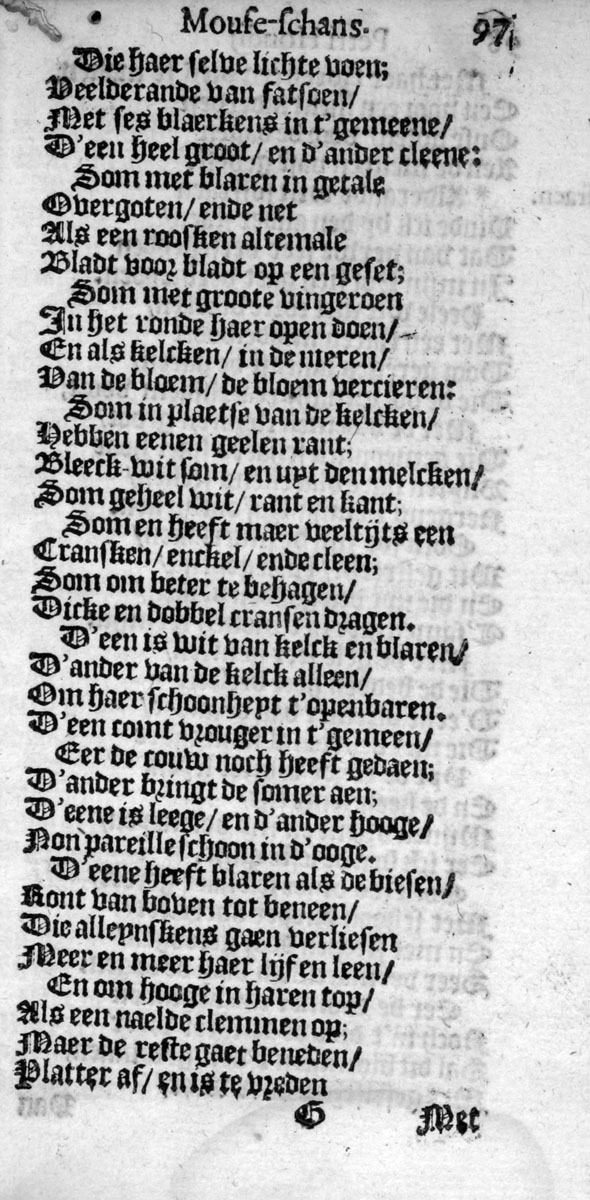 Mouse-schans. 97
Die haer selve lichte voen;
Veelderande van fatsoen/
Met ses blaerkens in t'gemeene/
D'een heel groot/ en d'ander cleene:
Som met blaren in getale
Overgoten/ ende net
Als een roosken altemale
Bladt voor bladt op een geset;
Som met groote vingeroen
In het ronde haer open doen/
En als kelcken/ in de meren/
Van de bloem/ de bloem vercieren:
Som in plaetse van de kelcken/
Hebben eenen geelen rant;
Bleeck-wit som/ en uyt den melcken/
Som geheel wit/ rant en kant;
Som en heeft maer veeltijts een
Cransken/ enckel/ ende cleen;
Som om beter te behagen/
Dicke en dobbel cransen dragen.
D'een is wit van kelck en blaren/
D'ander van de kelck alleen/
Om haer schoonheyt t'openbaren.
D'een comt vrouger in t'gemeen/
Eer de couw noch heeft gedaen;
D'ander bringt de somer aen;
D'eene is leege/ en d'ander hooge/
Non pareille schoon in d'ooge.
D'eene heeft blaren als de biesen/
Ront van boven tot beneen/
Die alleynskens gaen verliesen
Meer en meer haer lijf en leen/
En om hooge in haren top/
Als een naelde clemmen op;
Maer de reste gaet beneden/
Platter af/ en is te vreden
G Met